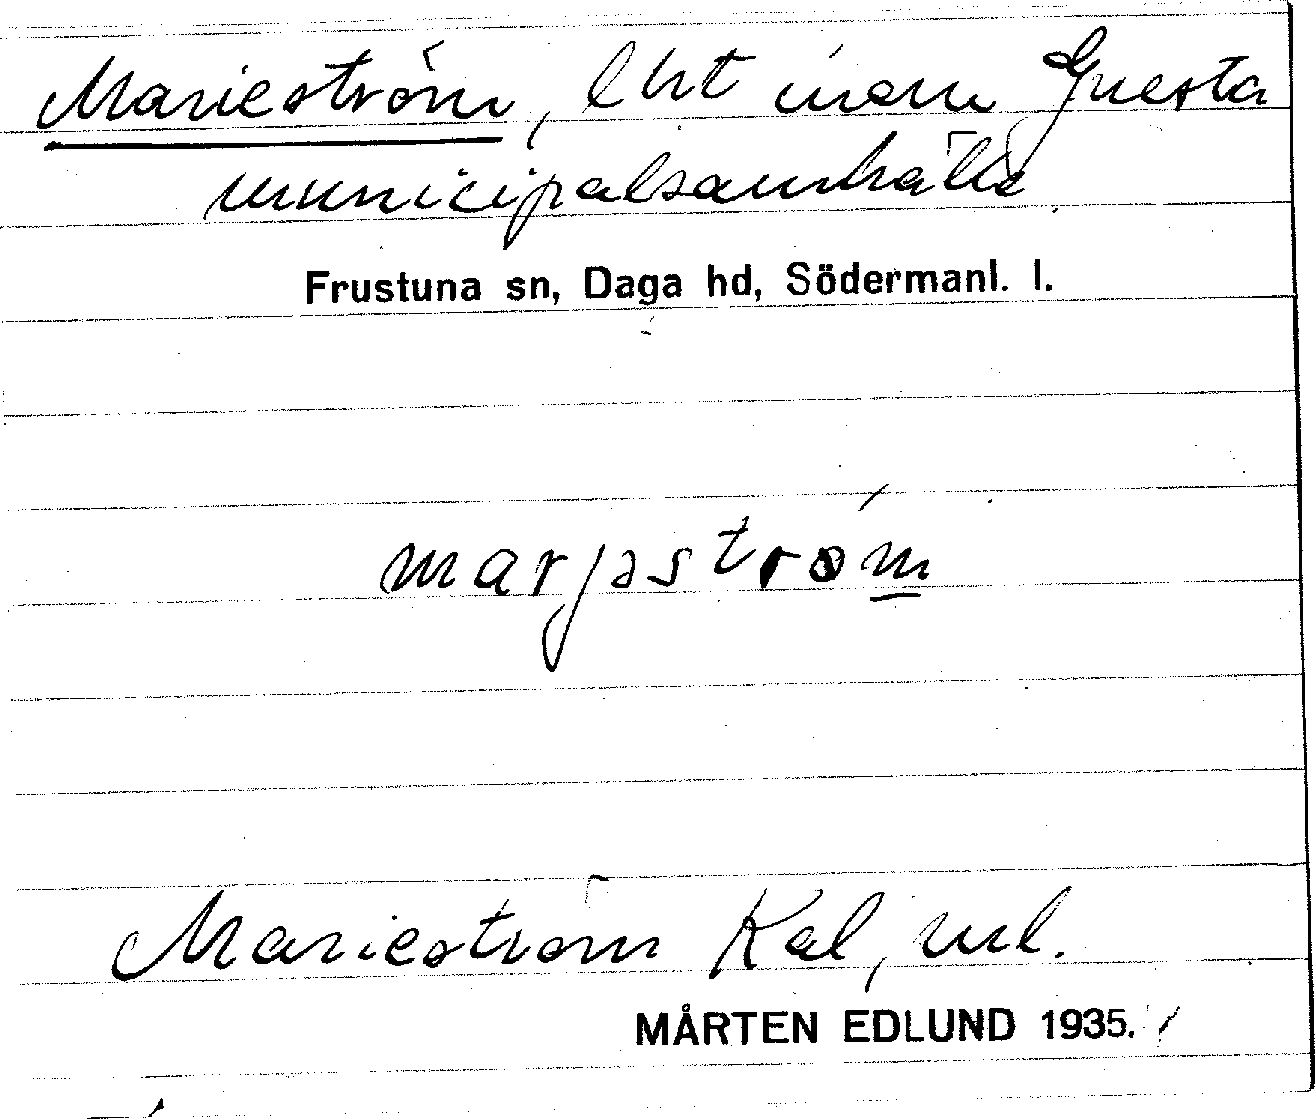 Marieström, lht inom Gnesta
municipalsamhälle
Frustuna sn, Daga hd, Södermanl. l.
marjəström
Marieström Kal, ml.
MÅRTEN EDLUND 1935.